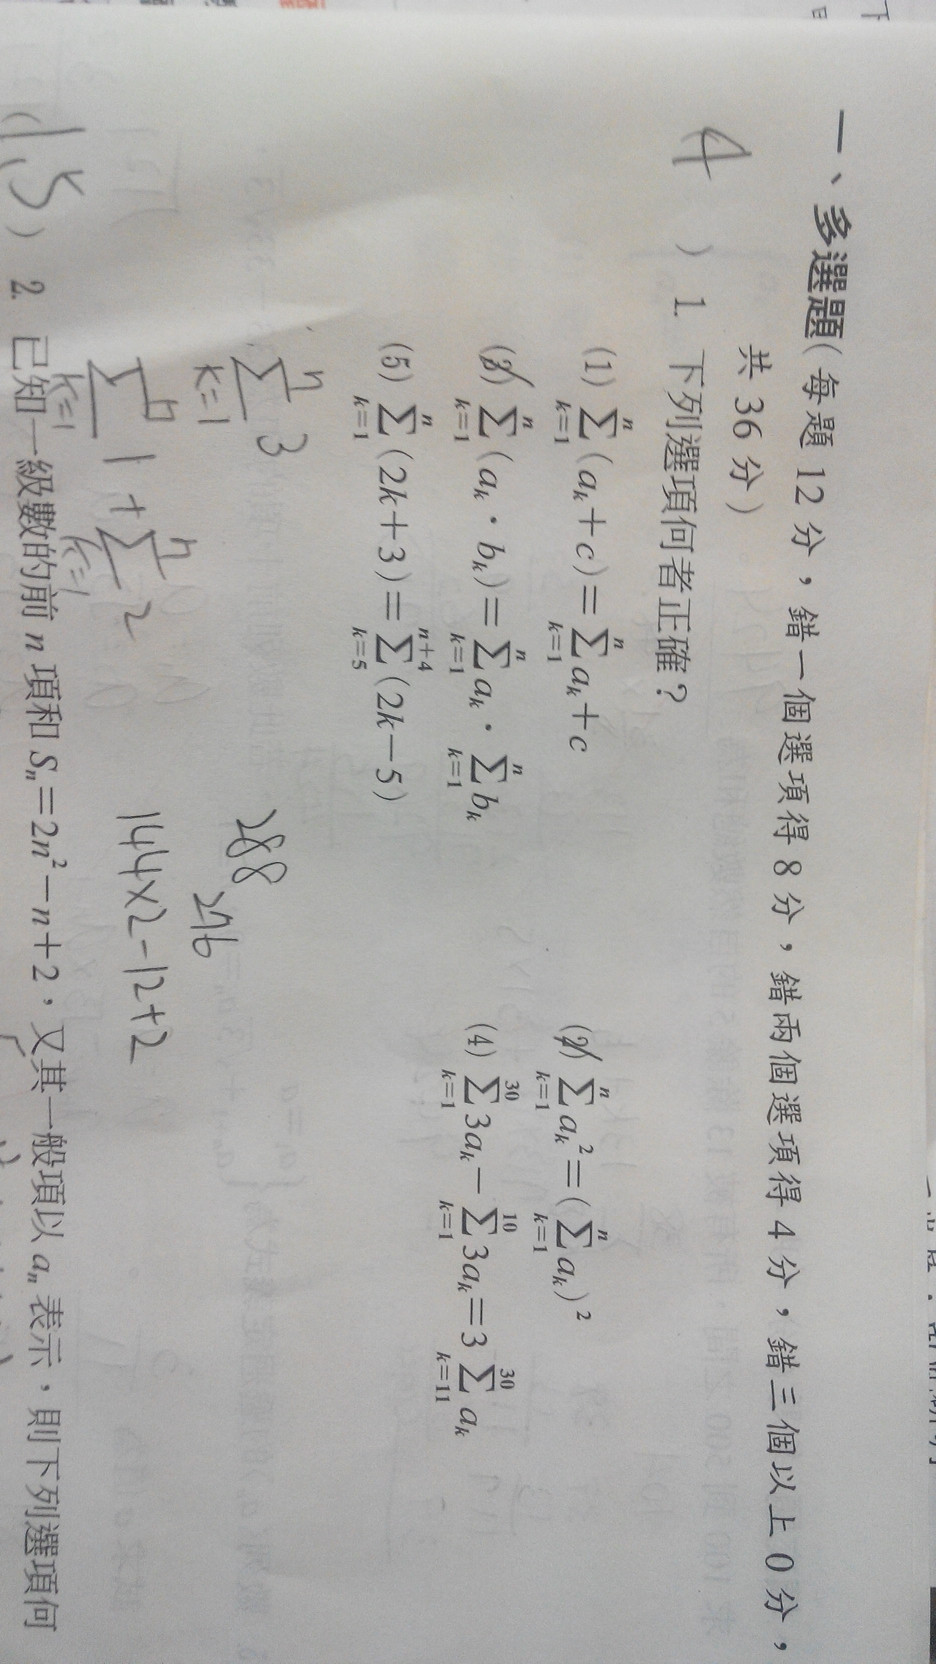 一、多選題(每題12分，錯一個選項得8分，錯兩個選項得4分，錯三個以上0分，
共36分)
4 ) 1. 下列選項何者正確？
(1) \sum_{k=1}^{n}(a_k+c)=\sum_{k=1}^{n}a_k+c
(2) \sum_{k=1}^{n}a_k^2=(\sum_{k=1}^{n}a_k)^2
(3) \sum_{k=1}^{n}(a_k·b_k)=\sum_{k=1}^{n}a_k·\sum_{k=1}^{n}b_k
(4) \sum_{k=1}^{30}3a_k-\sum_{k=1}^{10}3a_k=3\sum_{k=11}^{30}a_k
(5) \sum_{k=1}^{n}(2k+3)=\sum_{k=5}^{n+4}(2k-5)
\sum_{k=1}^{n}3
288
276
\sum_{k=1}^{n}1+\sum_{k=1}^{n}2
144×2-12+2
(15) 2. 已知一級數的前n項和S_n=2n^2-n+2，又其一般項以a_n表示，則下列選項何